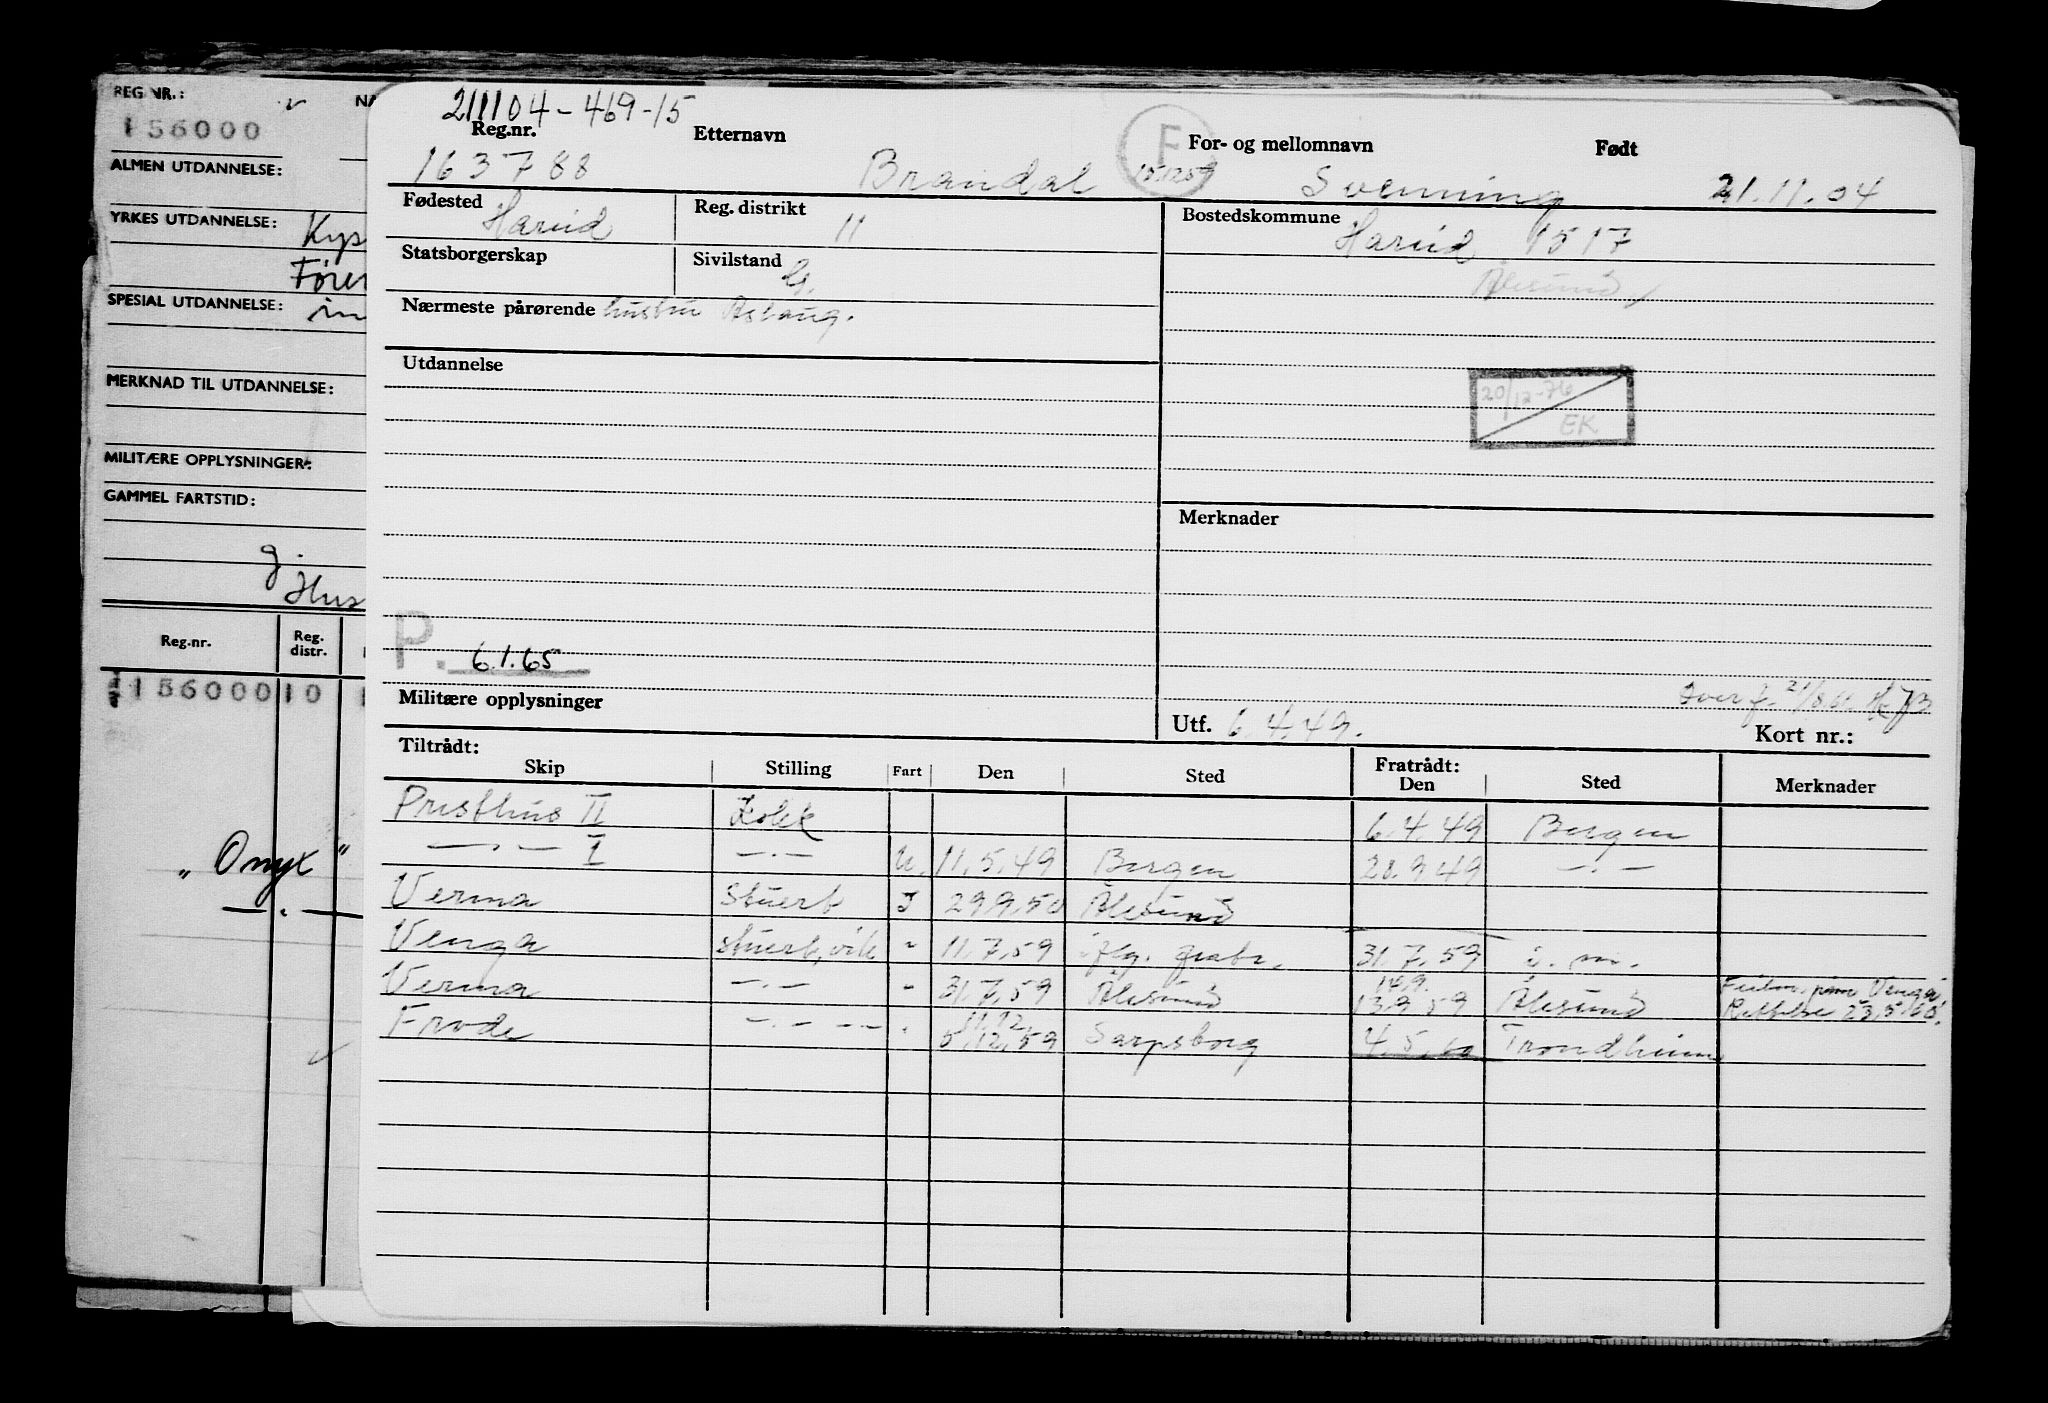 REG NR.:
156000
ALMEN UTDANNELSE:
YRKES UTDANNELSE: Kys
Fører
SPESIAL UTDANNELSE:
MERKNAD TIL UTDANNELSE:
MILITÆRE OPPLYSNINGER:
GAMMEL FARTSTID:
g.
Hus
Reg.nr. Reg. distr.
156000 10
"Onyx"
— . —
211104-469-15
Reg.nr. Etternavn F For- og mellomnavn Født
163788 Brandal 15.12.59 Svenning 21.11.04
Fødested Hareid Reg. distrikt 11 Bostedskommune Hareid 1517
Ålesund
Statsborgerskap Sivilstand G.
Nærmeste pårørende hustru Aslaug.
Utdannelse
20/12-76
EK
Merknader
P. 6.1.65
Militære opplysninger
Overf. 21/8 61
Utf. 6.4.49. Kort nr.:
Tiltrådt: Fratrådt:
Skip Stilling Fart Den Sted Den Sted Merknader
Pristhus II Kokk 6.4.49 Bergen
— . — I — . — U. 11.5.49 Bergen 28.9.49 — . —
Verma Stuert I 29.9.50 Ålesund
Venga Stuert, vik - 11.7.59 31.7.59 i. m.
Verma — . — - 31.7.59 Ålesund 13.9.59 Ålesund Venga
Rettelse 23.5.60.
Frode — . — — — 11.12 5.12.59 Sarpsborg 4.5.60 Trondheim